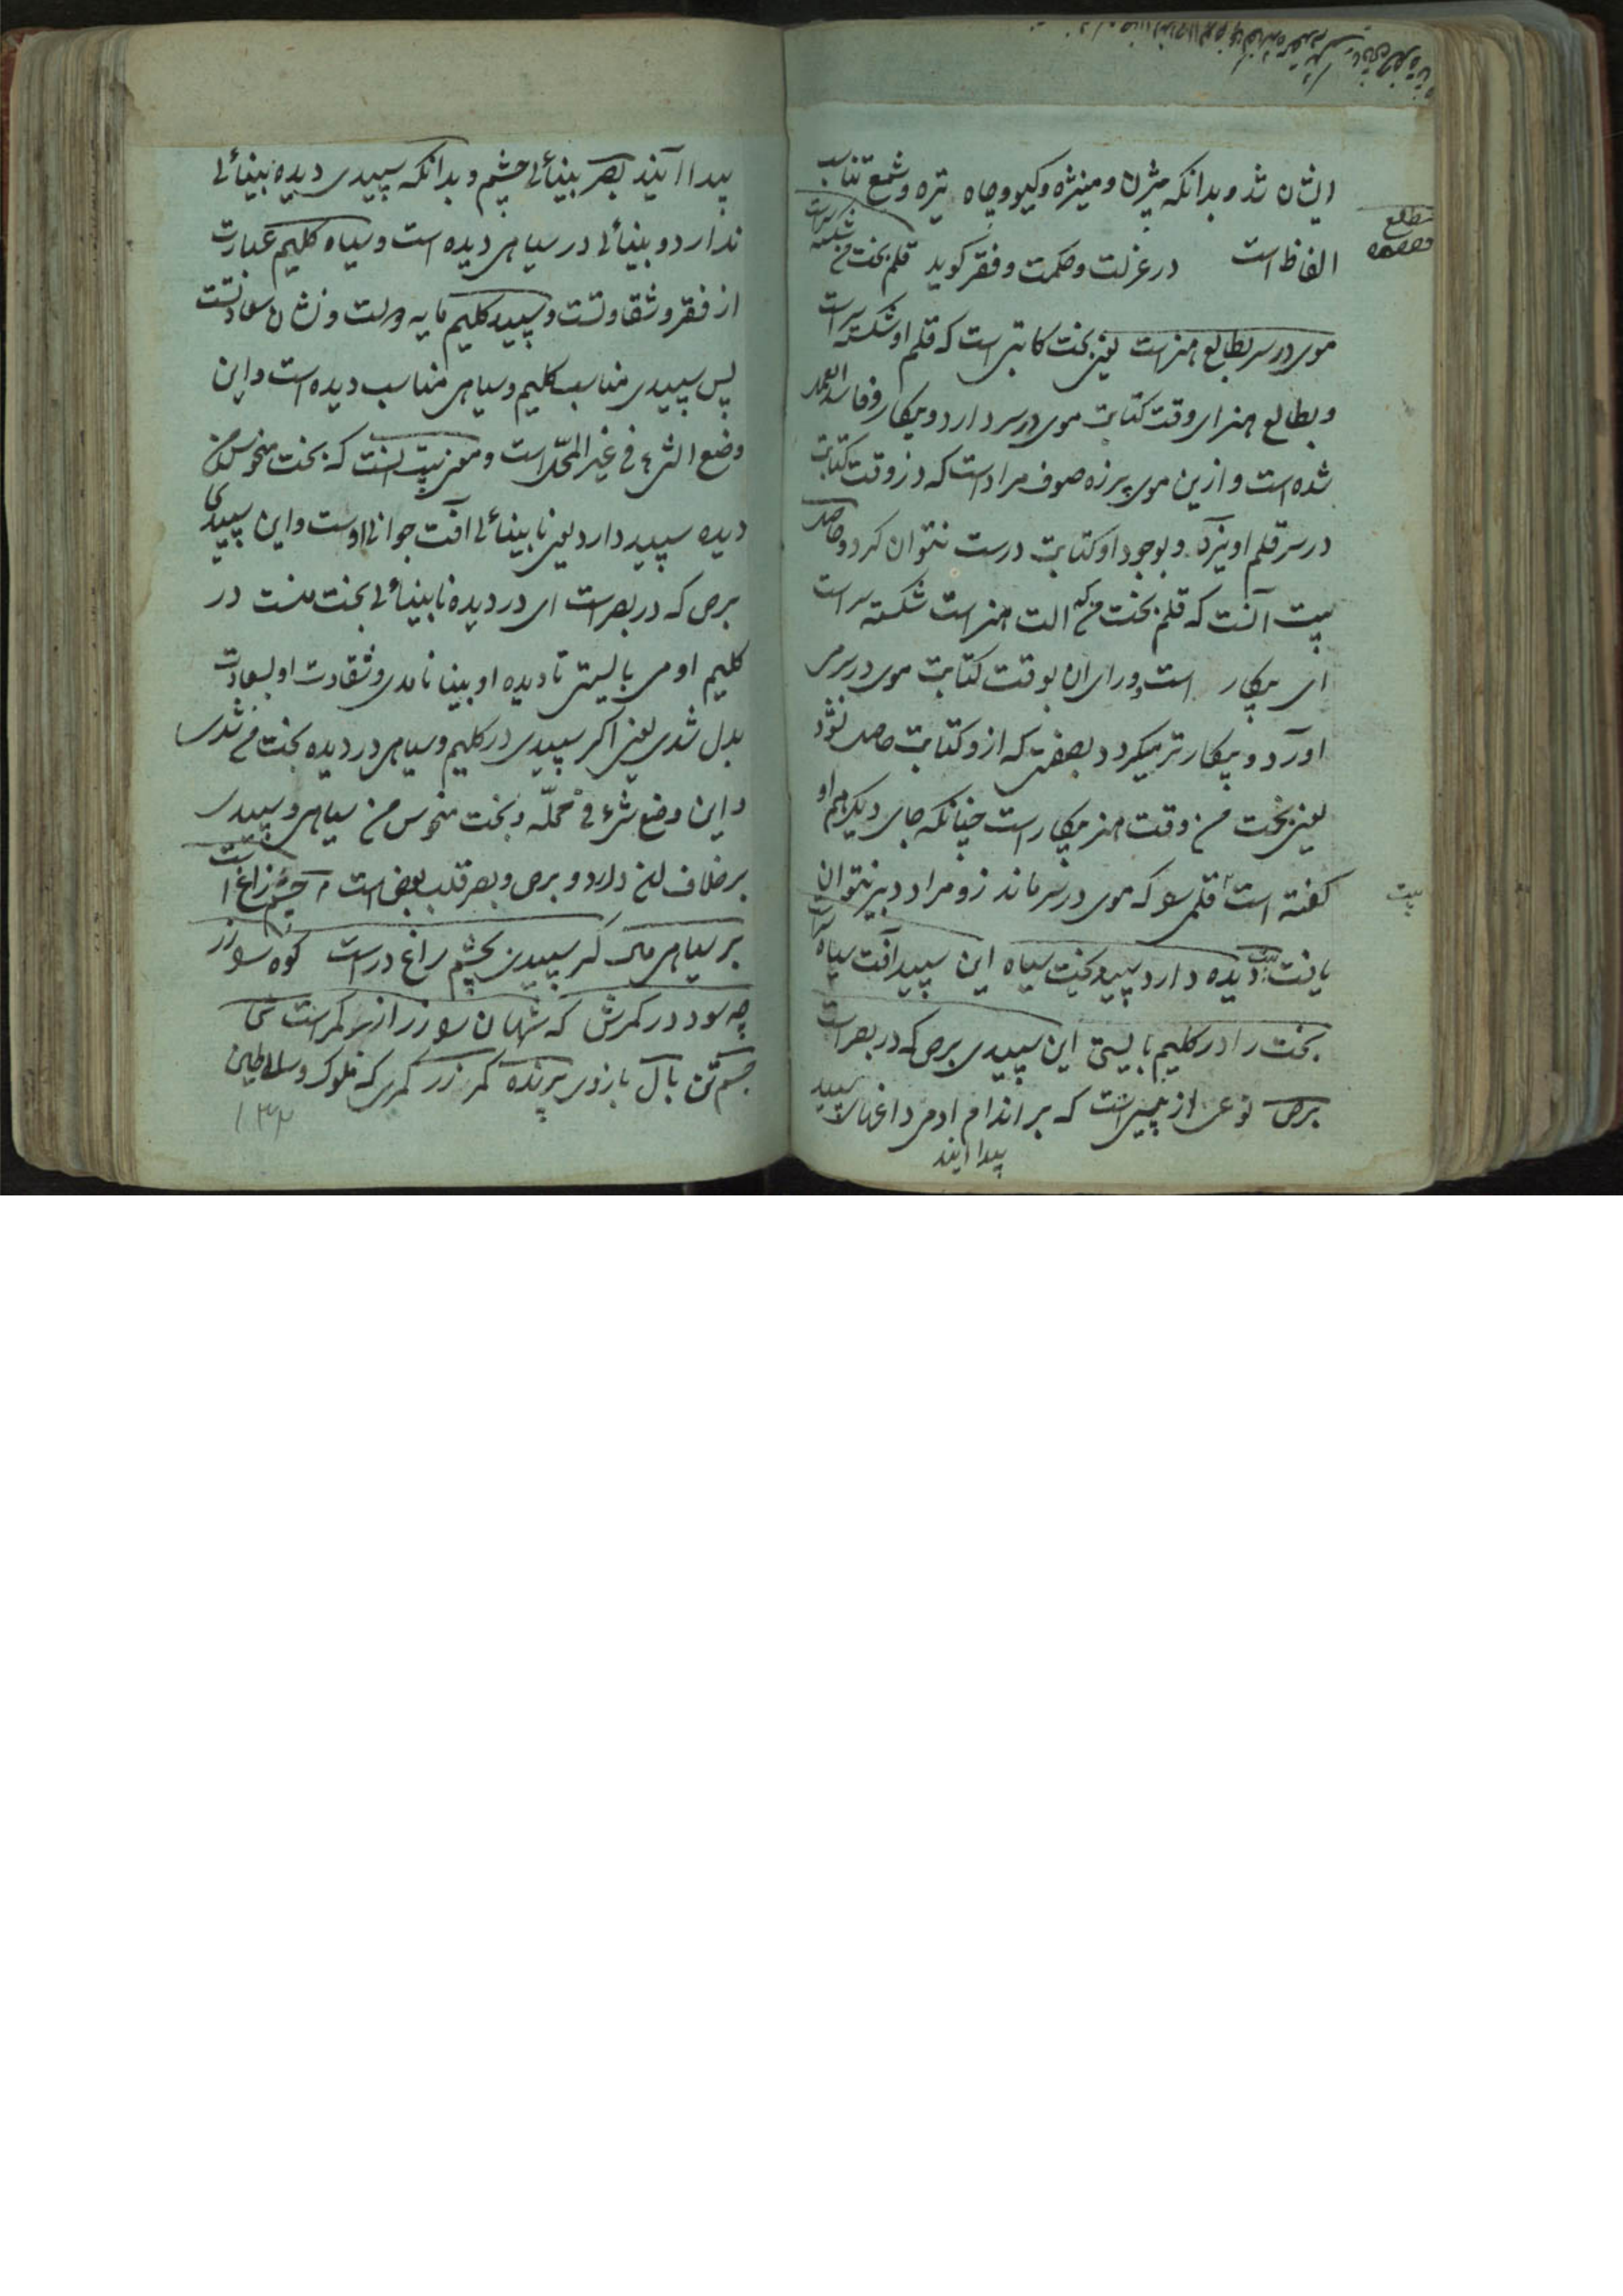 ایشان شد و بدانکه بیژن و منیژه و کیو و چاه تیره و شمع تناسب
الفاظ است در عزلت و حکمت و فقر کوید قلم بخت من شکسته سراست
مطلع
قصیده
موی در سر بطالع هنر است یعنی بخت کاتبی است که قلم او شکسته سر است
و بطالع هنر ای وقت کتابت موی در سر دارد و بیکار و فاسد العمل
شده است و ازین موی پرزه صوف مراد است که در وقت کتابت
در سر قلم اویزد و بوجود او کتابت درست نتوان کرد و حاصل
بیت آنست که قلم بخت من که الت هنر است شکسته سر است
ای بیکار است و ورای ان بوقت کتابت موی در سر می
اورد و بیکارتر میکردد بصفتی که از و کتابت حاصل نشود
یعنی بخت من وقت هنر بیکار است چنانکه جای دیکر هم او
کفته است قلمی را که موی در سر ماند زو مراد دبیر نتوان
بیت
یافت دیده دارد سپید بخت سیاه این سپید آفت سیاه سر است
بخت را در کلیم بایستی این سپیدی برص که در بصر است
برص نوعی از پیسی است که بر اندام ادمی داغهای سپید
پیدا ایند
پیدا آیند بصر بینائی چشم و بدانکه سپیدی دیده بینائی
ندارد و بینائی در سیاهی دیده است و سیاه کلیم عبارت
از فقر و شقاوتست و سپید کلیم مایه دولت و نشان سعادتست
پس سپیدی مناسب کلیم و سیاهی مناسب دیده است و این
وضع الشیٔ فی غیر المحل است و معنی بیت انست که بخت منحوس من
دیده سپید دارد یعنی نابینائی آفت جوانی اوست و این سپیدی
برص که در بصر است ای در دیده نابینائی بخت منست در
کلیم او می بایستی تا دیده او بینا نامدی و شقاوت او بسعادت
بدل شدی یعنی اکر سپیدی در کلیم و سیاهی در دیده بخت من شدی
و این وضع شیٔ فی محلّه و بخت منحوس من سیاهی و سپیدی
بر خلاف این دارد و برص و بصر قلب بعض است چشم زاغ است
بر سیاهی بال کر سپیدی بچشم زاغ در است کوه را زر
چه سود در کمرش که شهان را زر از بر کمر است
چشم تن بال بازوی پرنده کمر زر کمری که ملوک و سلاطین
۱۳۲